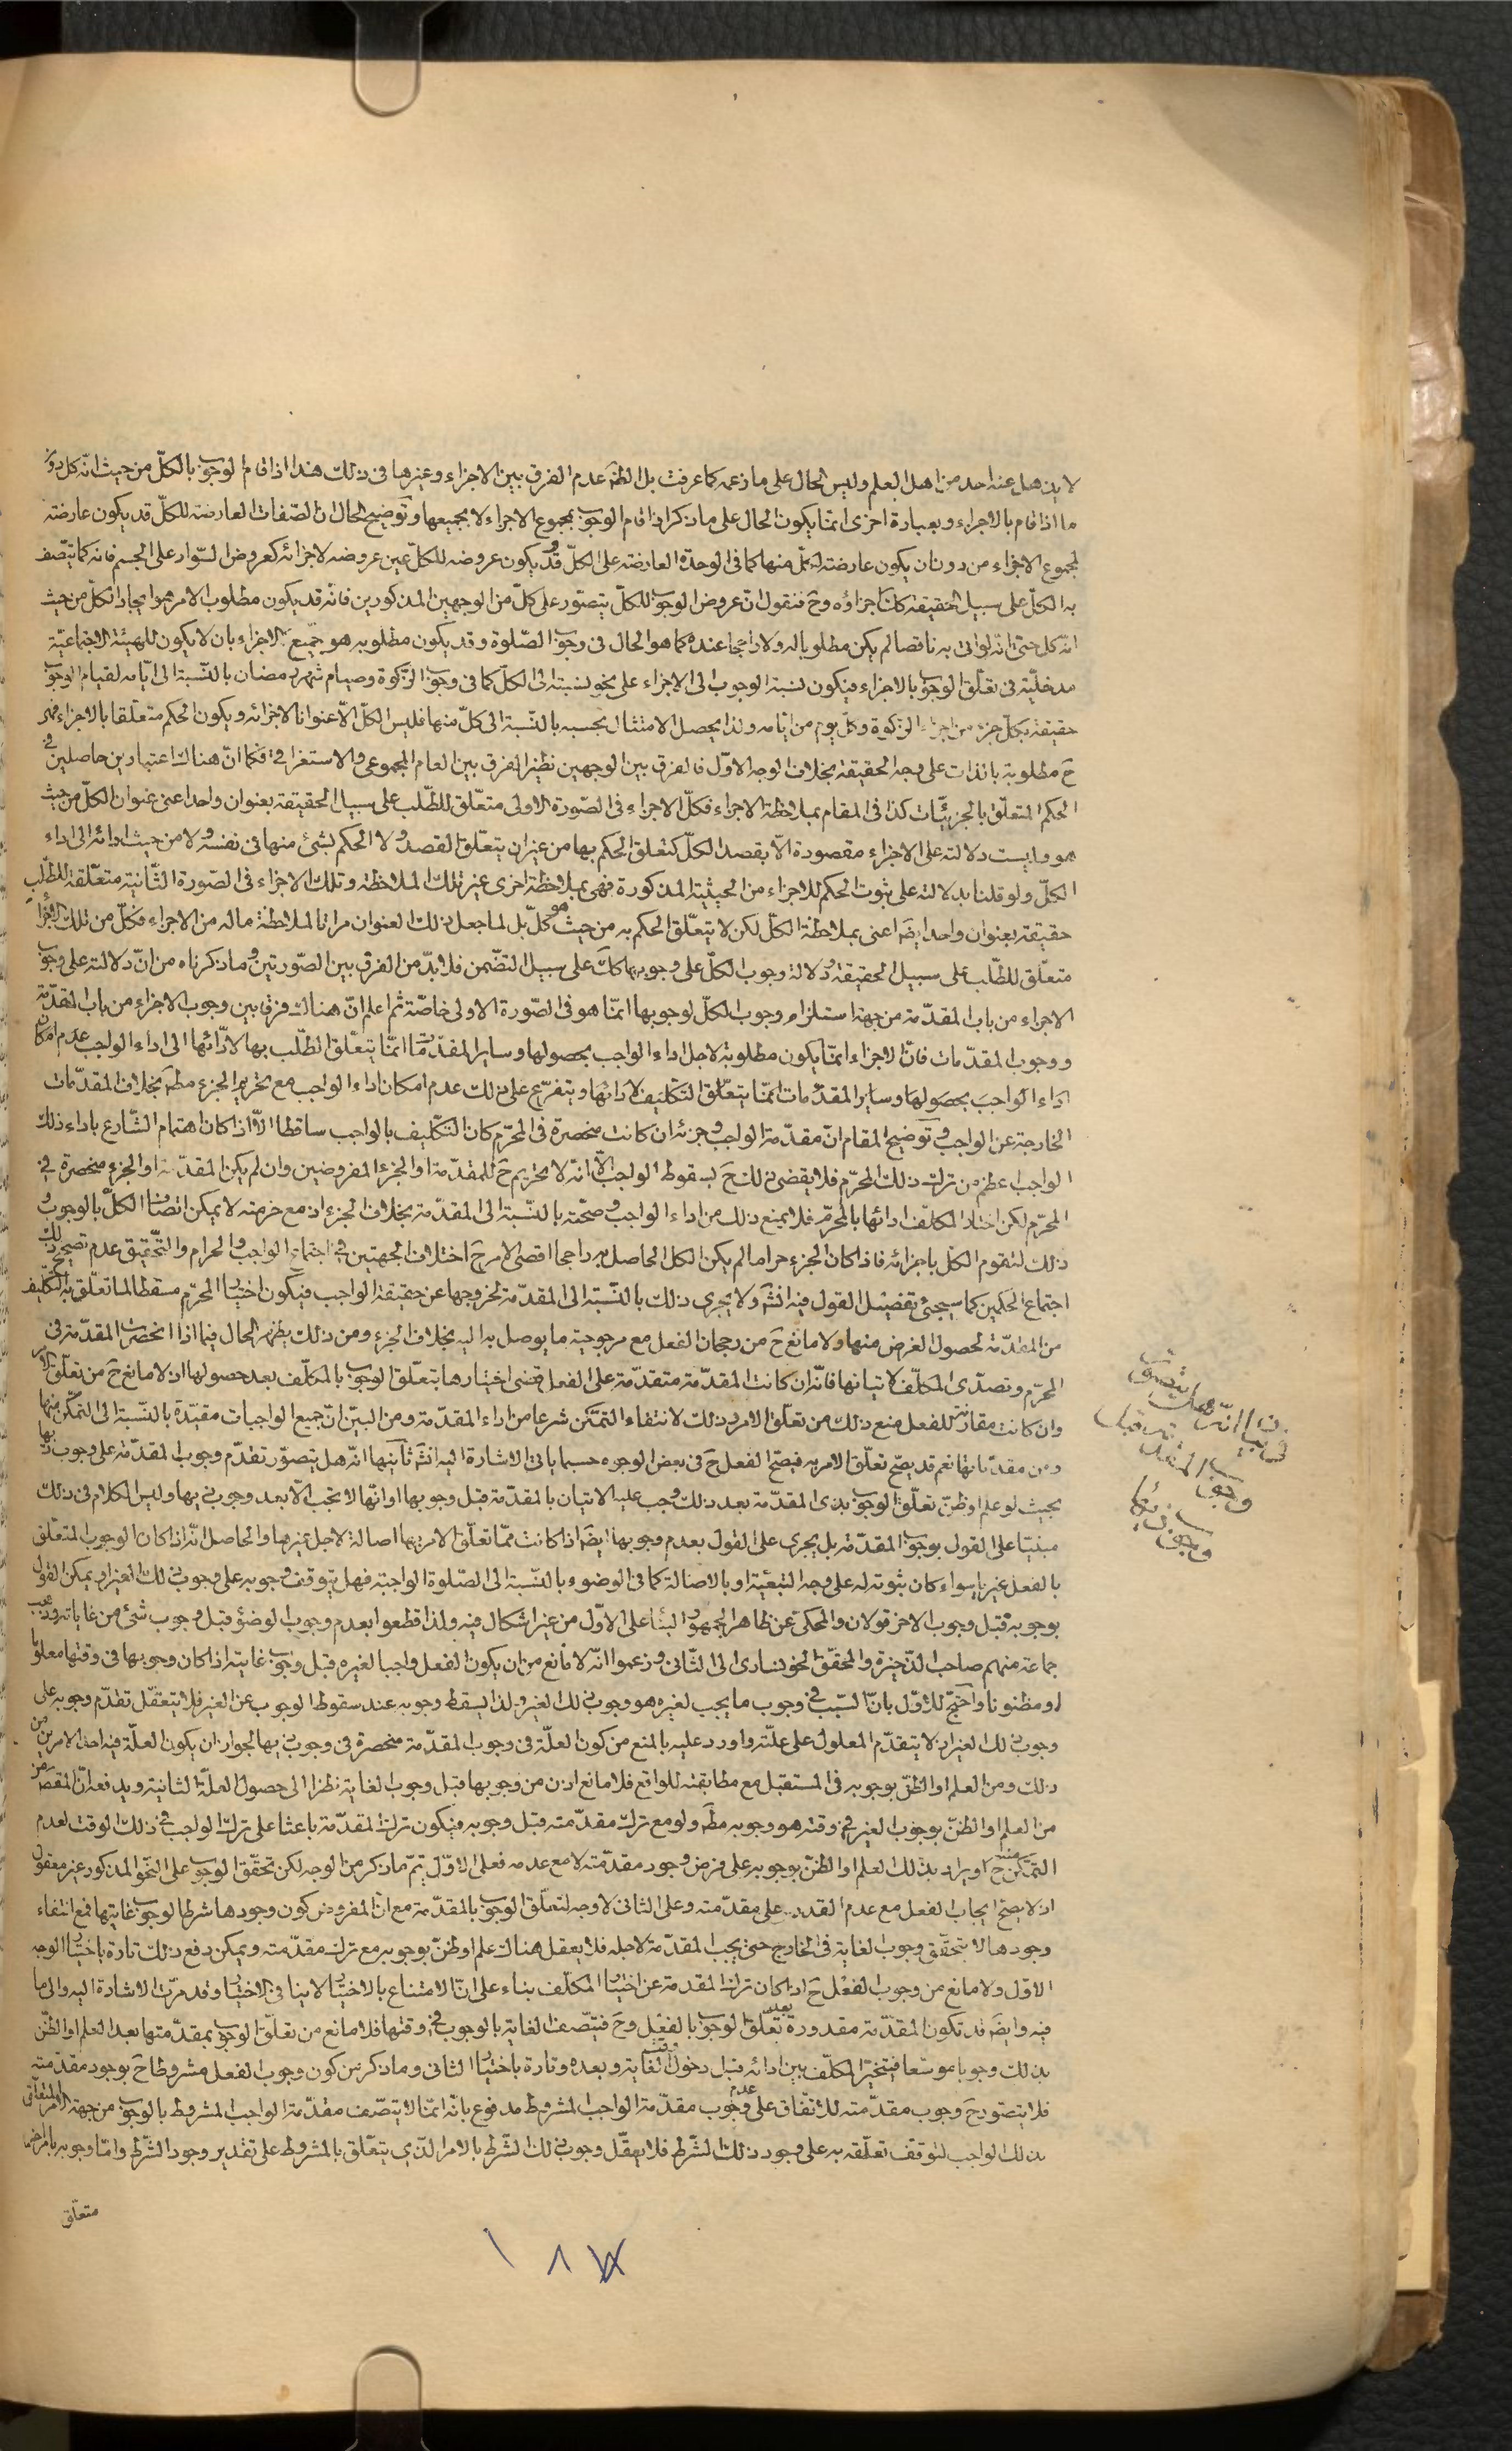 لا يذهل عنه احد من اهل العلم وليس الحال على ما زعمه كما عرفت بل الظ عدم الفرق بين الاجزاء وغيرها فى ذلك هذا اذا قام الوجوب بالكلّ من حيث انه كل دون
ما اذا قام بالاجزاء وبعبارة اخرى انما يكون الحال على ما ذكر اذا قام الوجوب بمجموع الاجزاء لا بجميعها وتوضيح الحال ان الصّفات العارضة للكلّ قد يكون عارضة
لمجموع الاجزاء من دون ان يكون عارضة لكل منها كما فى الوحدة العارضة على الكلّ وقد يكون عروضه للكلّ عين عروضه لاجزائه كعروض السّواد على الجسم فانه كما يتّصف
به الكلّ على سبيل الحقيقة كك اجزاؤه وح فنقول انّ عروض الوجوب للكلّ يتصوّر على كلّ من الوجهين المذكورين فانّه قد يكون مطلوب الامر هو ايجاد الكلّ من حيث
انه كل حتى انه لو اتى به ناقصا لم يكن مطلوبا له ولا راجحا عنده كما هو الحال فى وجوب الصّلوة وقد يكون مطلوبه هو جميع الاجزاء بان لا يكون للهيئة الاجتماعيّة
مدخليّة فى تعلّق الوجوب بالاجزاء فيكون نسبة الوجوب الى الاجزاء على نحو نسبته الى الكلّ كما فى وجوب الزكوة وصيام شهر رمضان بالنّسبة الى ايّامه لقيام الوجوب
حقيقة بكلّ جزء من اجزاء الزكوة وكلّ يوم من ايّامه ولذا يحصل الامتثال بحسبه بالنّسبة الى كلّ منها فليس الكلّ الّا عنوانا لاجزائه ويكون الحكم متعلّقا بالاجزاء فهى
ح مطلوبة بالذات على وجه الحقيقة بخلاف الوجه الاوّل فالفرق بين الوجهين نظير الفرق بين العام المجموعى والاستغراقى فكما انّ هناك اعتبارين حاصلين فى
الحكم المتعلّق بالجزئيّات كذا فى المقام بملاحظة الاجزاء فكلّ الاجزاء فى الصّورة الاولى متعلّق للطّلب على سبيل الحقيقة بعنوان واحد اعنى عنوان الكلّ من حيث
هو وليست دلالته على الاجزاء مقصودة الّا بقصد الكلّ كتعلق الحكم بها من غير ان يتعلّق القصد ولا الحكم بشئ منها فى نفسه ولا من حيث ادائه الى اداء
الكلّ ولو قلنا بدلالته على ثبوت الحكم للاجزاء من الحيثية المذكورة فهى بملاحظة اخرى غير تلك الملاحظة وتلك الاجزاء فى الصّورة الثّانية متعلّقة للطّلب
حقيقة بعنوان واحد ايضا اعنى بملاحظة الكلّ لكن لا يتعلّق الحكم به من حيث هو كلّ بل لما جعل ذلك العنوان مراتا لملاحظة ماله من الاجزاء فكلّ من تلك الاجزاء
متعلّق للطّلب على سبيل الحقيقة ودلالة وجوب الكلّ على وجوبها كك على سبيل التضّمن فلا بدّ من الفرق بين الصّورتين وما ذكرناه من انّ دلالته على وجوب
الاجزاء من باب المقدّمة من جهة استلزام وجوب الكلّ لوجوبها انمّا هو فى الصّورة الاولى خاصّة ثم اعلم انّ هناك فرق بين وجوب الاجزاء من باب المقدّمة
ووجوب المقدّمات فانّ الاجزاء انمّا يكون مطلوبة لاجل اداء الواجب بحصولها وساير المقدّمات انمّا يتعلّق الطّلب بها لادّائها الى اداء الواجب عدم امكان
اداء الواجب بحصولها وساير المقدّمات انمّا يتعلّق التكليف لادائها ويتفرّع على ذلك عدم امكان اداء الواجب مع تحريم الجزء مطم بخلاف المقدّمات
الخارجة عن الواجب وتوضيح المقام انّ مقدّمة الواجب وجزئه ان كانت منحصرة فى المحرّم كان التكّليف بالواجب ساقطا الّا اذا كان اهتمام الشّارع باداء ذلك
الواجب اعظم من ترك ذلك المحرّم فلا يقضى ذلك ح بسقوط الواجب الّا انّه لا تحريم ح للمقدّمة او الجزء المفروضين وان لم يكن المقدّمة او الجزء منحصرة فى
المحرّم لكن اختار المكلّف ادائها بالمحرّم فلا يمنع ذلك من اداء الواجب وصحّته بالنّسبة الى المقدّمة بخلاف الجزء اذ مع حرمته لا يمكن اتصاف الكلّ بالوجوب و
ذلك لتقوم الكلّ باجزائه فاذا كان الجزء حراما لم يكن الكل الحاصل به راجحا اقصى الامر ح اختلاف الجهتين فى اجتماع الواجب والحرام والتّحقيق عدم تصحيح ذلك
اجتماع الحكمين كما سيجئ تفضيل القول فيه انشّه ولا يجرى ذلك بالنّسبة الى المقدّمة لخروجها عن حقيقة الواجب فيكون اختيار المحرّم مسقطا لما تعلّق به التكليف
من المقدّمة لحصول الغرض منها ولا مانع ح من رجحان الفعل مع مرجوحية ما يوصل به اليه بخلاف الجزء ومن ذلك يظهر الحال فيما اذا انحصرت المقدّمة فى
المحرّم وتصدّى المكلّف لاتيانها فانّه ان كانت المقدّمة متقدّمة على الفعل قضى اختيارها بتعلّق الوجوب بالمكلّف بعد حصولها اذ لا مانع ح من تعلّق الامر
وان كانت مقارنة للفعل منع ذلك من تعلّق الامر وذلك لانتفاء التمكّن شرعا من اداء المقدّمة ومن البيّن انّ جميع الواجبات مقيّدة بالنّسبة الى التمكّن منها
ومن مقدّماتها نعم قد يصّح تعلّق الامر به فيصّح الفعل ح فى بعض الوجوه حسبما ياتى الاشارة اليه انشّه ثانيها انّه هل يتصوّر تقدّم وجوب المقدّمة على وجوب ذيها
بحيث لو علم او ظنّ تعلّق الوجوب بذى المقدّمة بعد ذلك وجب عليه الاتيان بالمقدّمة قبل وجوبها او انّها لا تجب الّا بعد وجوب ذيها وليس الكلام فى ذلك
مبنيّا على القول بوجوب المقدّمة بل يجرى على القول بعدم وجوبها ايضا اذا كانت ممّا تعلّق الامر بها اصالة لاجل غيرها والحاصل انّه اذا كان الوجوب المتعلّق
بالفعل غيريا سواء كان ثبوته له على وجه التبعيّة او بالاصالة كما فى الوضوء بالنّسبة الى الصّلوة الواجبة فهل يتوقف وجوبه على وجوب ذلك الغير او يمكن القول
بوجوبه قبل وجوب الاخر قولان والمحكى عن ظاهر الجمهور البناء على الاوّل من غير اشكال فيه ولذا قطعوا بعدم وجوب الوضوء قبل وجوب شئ من غاياته وذهب
جماعة منهم صاحب الذّخيرة والمحقّق الخونسارى الى الثّانى وزعموا انّه لا مانع من ان يكون الفعل واجبا لغيره قبل وجوب غايته اذا كان وجوبها فى وقتها معلوما
او مظنونا واحتجّ للاوّل بانّ السّبب فى وجوب ما يجب لغيره هو وجوب ذلك الغير ولذا يسقط وجوبه عند سقوط الوجوب عن الغير فلا يتعقّل تقدّم وجوبه على
وجوب ذلك الغير اذ لا يتقدّم المعلول على علّته واورد عليه بالمنع من كون العلّة فى وجوب المقدّمة منحصرة فى وجوب ذيها لجواز ان يكون العلّة فيه احد الامرين من
ذلك ومن العلم او الظنّ بوجوبه فى المستقبل مع مطابقته للواقع فلا مانع اذن من وجوبها قبل وجوب الغاية نظرا الى حصول العلّة الثانية ويدفعه انّ المقصود
من العلم او الظنّ بوجوب الغير فى وقته هو وجوبه مطم ولو مع ترك مقدّمته قبل وجوبه فيكون ترك المقدّمة باعثا على ترك الواجب فى ذلك الوقت لعدم
التمكّن منه ح او يراد بذلك العلم او الظنّ بوجوبه على فرض وجود مقدّمته لا مع عدمه فعلى الاوّل يتمّ ما ذكر من الوجه لكن تحقّق الوجوب على النّحو المذكور غير معقول
اذ لا يصحّ ايجاب الفعل مع عدم القدرة على مقدّمته وعلى الثانى لا وجه لتعلّق الوجوب بالمقدّمة مع انّ المفروض كون وجودها شرطا لوجوب غايتها فمع انتفاء
وجودها لا يتحقّق وجوب الغاية فى الخارج حتى يجب المقدّمة لاجله فلا يعقل هناك علم او ظنّ بوجوبه مع ترك مقدّمته ويمكن دفع ذلك تارة باختيار الوجه
الاوّل ولا مانع من وجوب الفعل ح اذا كان ترك المقدمة عن اختيار المكلّف بناء على انّ الامتناع بالاختيار لا ينافى الاختيار وقد مرّت الاشارة اليه والى ما
فيه وايضا قد تكون المقدّمة مقدورة بعد تعلّق الوجوب بالفعل وح فيتّصف الغاية بالوجوب فى وقتها فلا مانع من تعلّق الوجوب بمقدّمتها بعد العلم او الظنّ
بذلك وجوبا موسّعا فيتخيّر المكلّف بين ادائه قبل دخول وقت الغاية وبعده وتارة باختيار الثانى وما ذكر من كون وجوب الفعل مشروطا ح بوجود مقدّمته
فلا يتصوّر ح وجوب مقدّمته للاتّفاق على عدم وجوب مقدّمة الواجب المشروط مدفوع بانّه انمّا لا يتصّف مقدّمة الواجب المشروط بالوجوب من جهة الامر المتعلّق
بذلك الواجب لتوقّف تعلّقه به على وجود ذلك الشرط فلا يعقّل وجوب ذلك الشّرط بالامر الّذى يتعلّق بالمشروط على تقدير وجود الشّرط وامّا وجوبه بامر اخر
متعلّق
فى بيان انّه هل يتصوّر
وجوب المقدمة قبل
وجوب ذيها